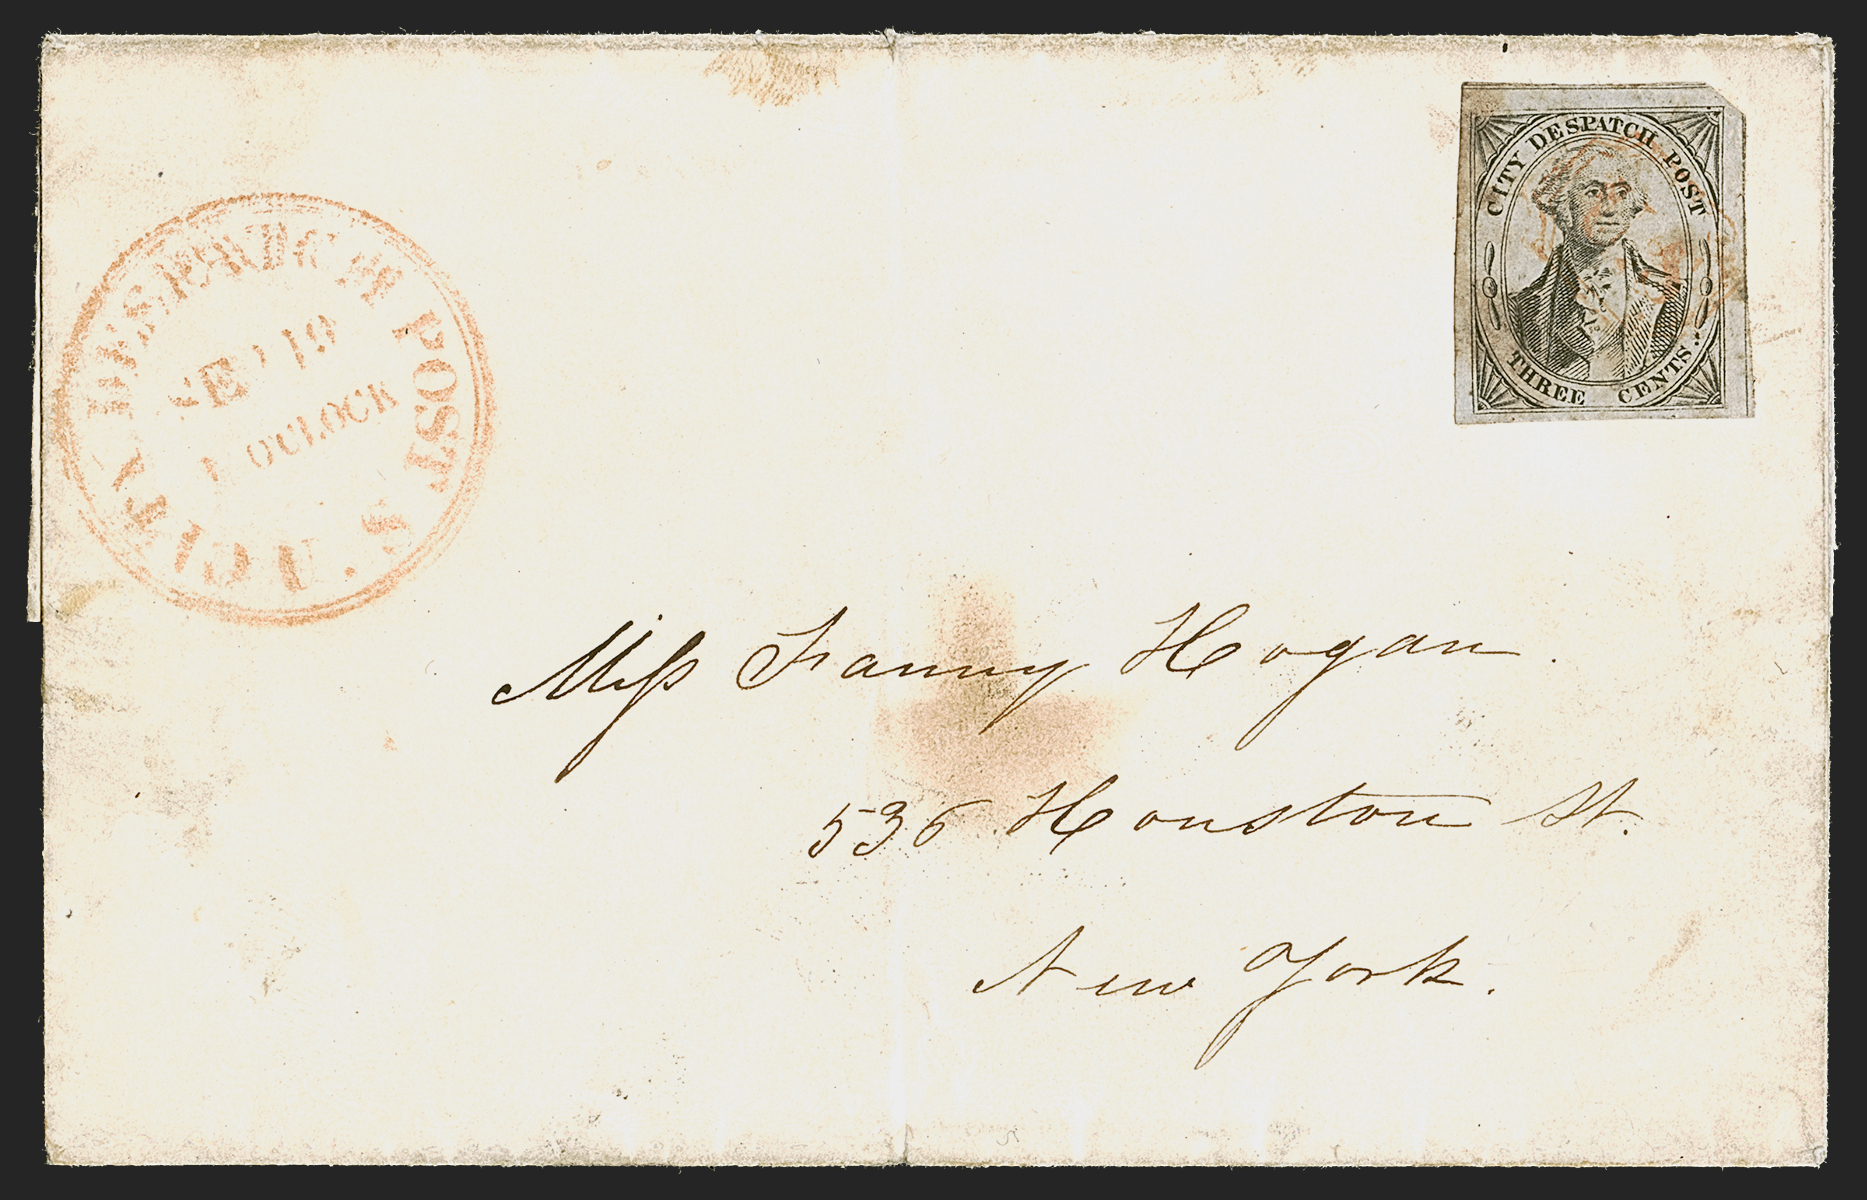 U.S. CITY DESPATCH POST
SEP 19
O'CLOCK
CITY DESPATCH POST
THREE CENTS.
Miss Fanny Hogan.
536 Houston St.
New York.